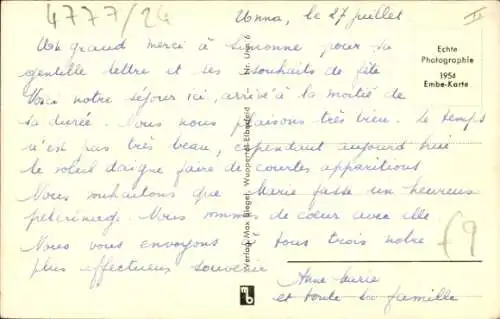 4777/24
Unna, le 27 juillet
Un grand merci à Simonne pour sa
gentille lettre et ses souhaits de fête
Voici notre séjour ici, arrivé à la moitié de
sa durée. Nous nous plaisons très bien. Le temps
n'est pas très beau, cependant aujourd'hui
le soleil daigne faire de courtes apparitions
Nous souhaitons que Marie fasse un heureux
pèlerinage. Nous sommes de coeur avec elle.
Nous vous envoyons à tous trois notre
plus affectueux souvenir
Anne Marie
et toute sa famille
Echte
Photographie
1954
Embe-Karte
Verlag Max Biegel, Wuppertal-Elberfeld
Nr. Un 6
mb